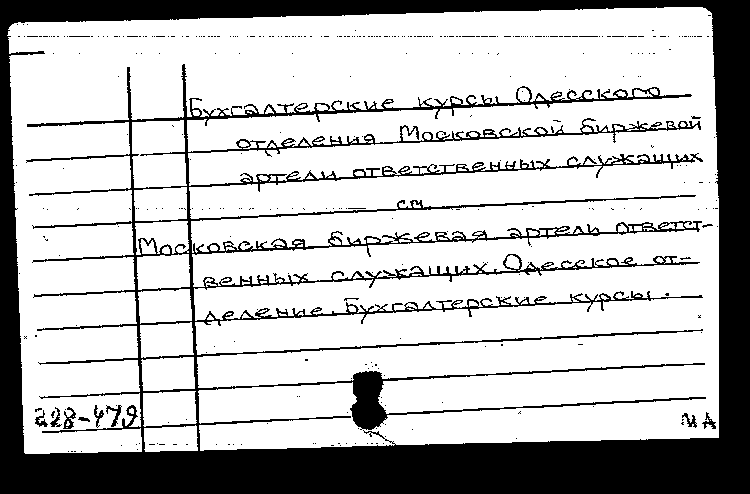 Бухгалтерские курсы Одесского
отделения Московской биржевой
артели ответственных служащих
см.
Московская биржевая артель ответст-
венных служащих. Одесское от-
деление. Бухгалтерские курсы.
228-479
МА